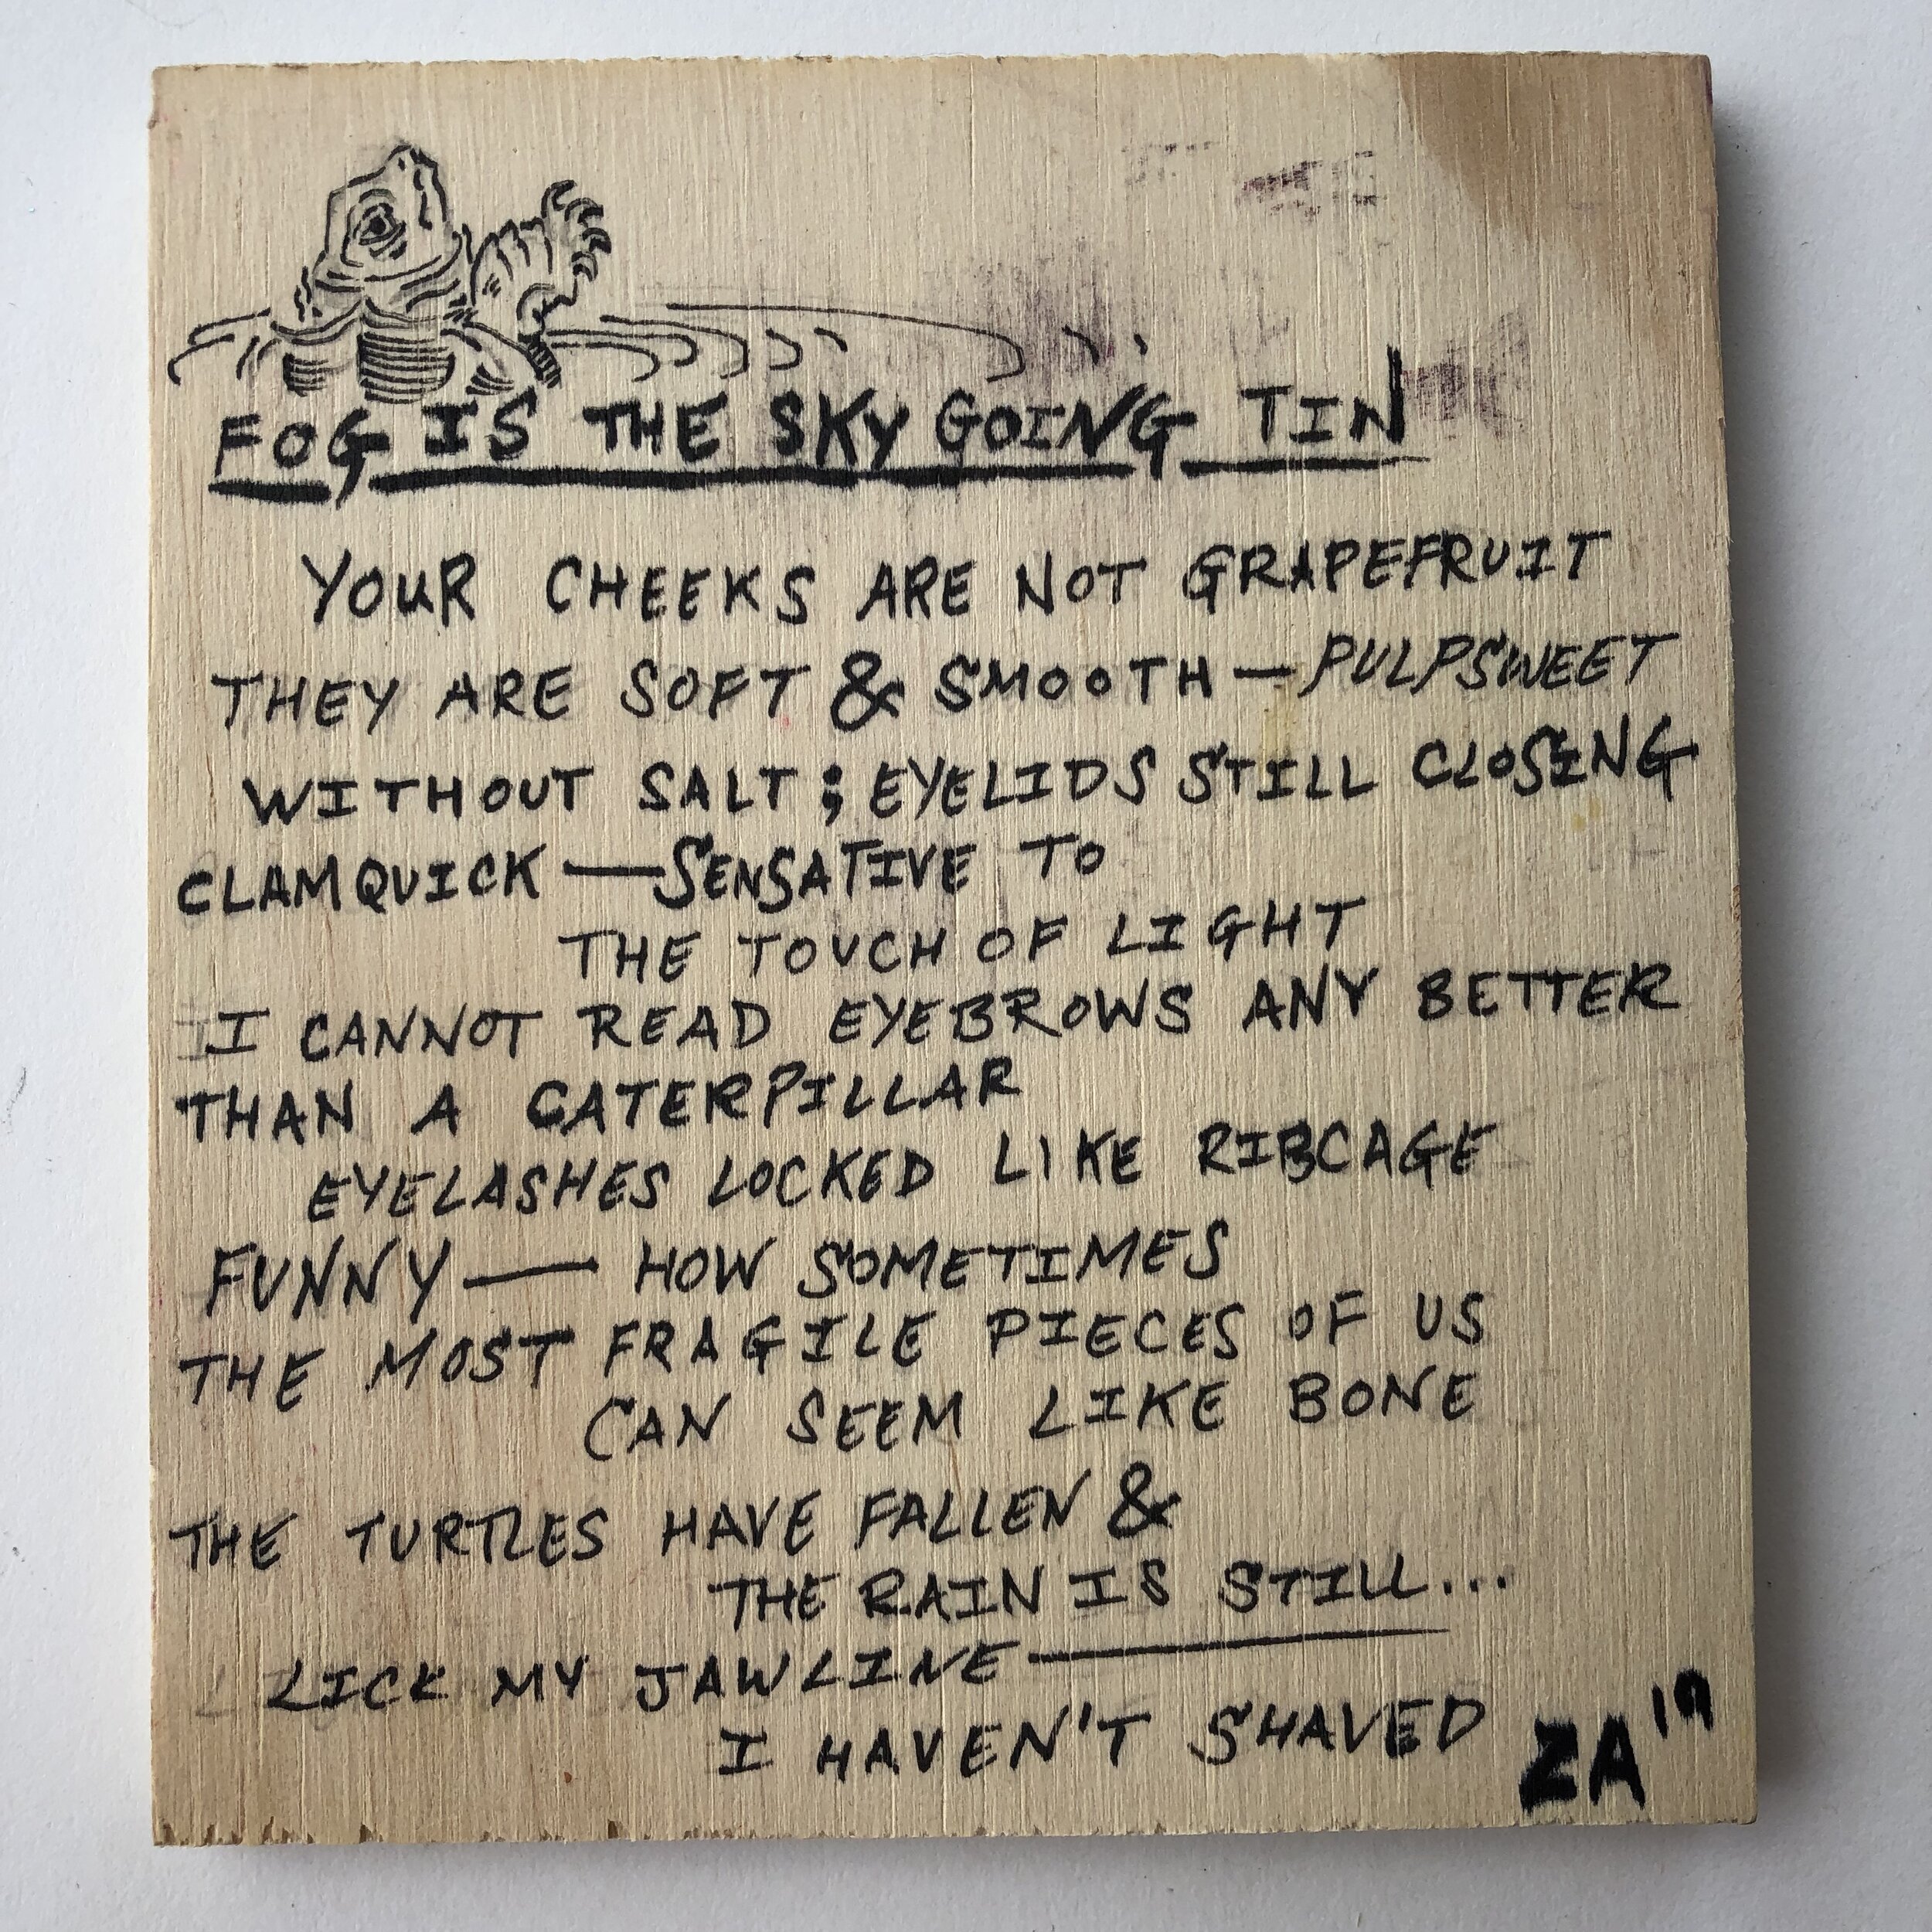 FOG IS THE SKY GOING TIN
YOUR CHEEKS ARE NOT GRAPEFRUIT
THEY ARE SOFT & SMOOTH — PULPSWEET
WITHOUT SALT; EYELIDS STILL CLOSING
CLAMQUICK — SENSATIVE TO
THE TOUCH OF LIGHT
I CANNOT READ EYEBROWS ANY BETTER
THAN A CATERPILLAR
EYELASHES LOCKED LIKE RIBCAGE
FUNNY — HOW SOMETIMES
THE MOST FRAGILE PIECES OF US
CAN SEEM LIKE BONE
THE TURTLES HAVE FALLEN &
THE RAIN IS STILL...
LICK MY JAWLINE —
I HAVEN'T SHAVED
ZA '19